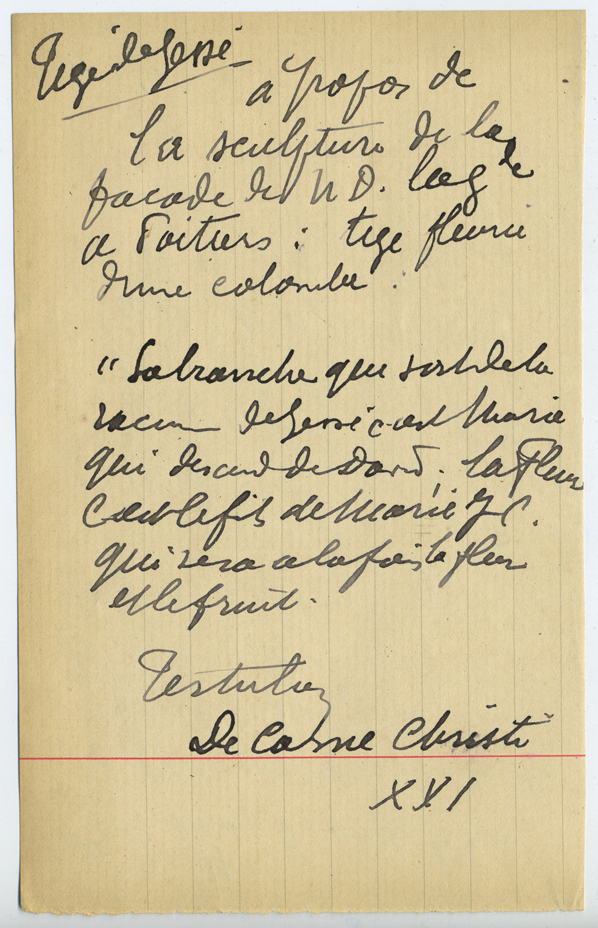 Tige de Jessé
à propos de
la sculpture de la
facade de N D. la g de
a Poitiers : tige fleurie
d'une colombe.
"La branche qui sort de la
racine de Jessé c'est Marie
qui descend de David, la fleur
c'est le fils de Marie J C.
qui sera a la fois la fleur
et le fruit.
Tertulien
De Carne Christi
XXI